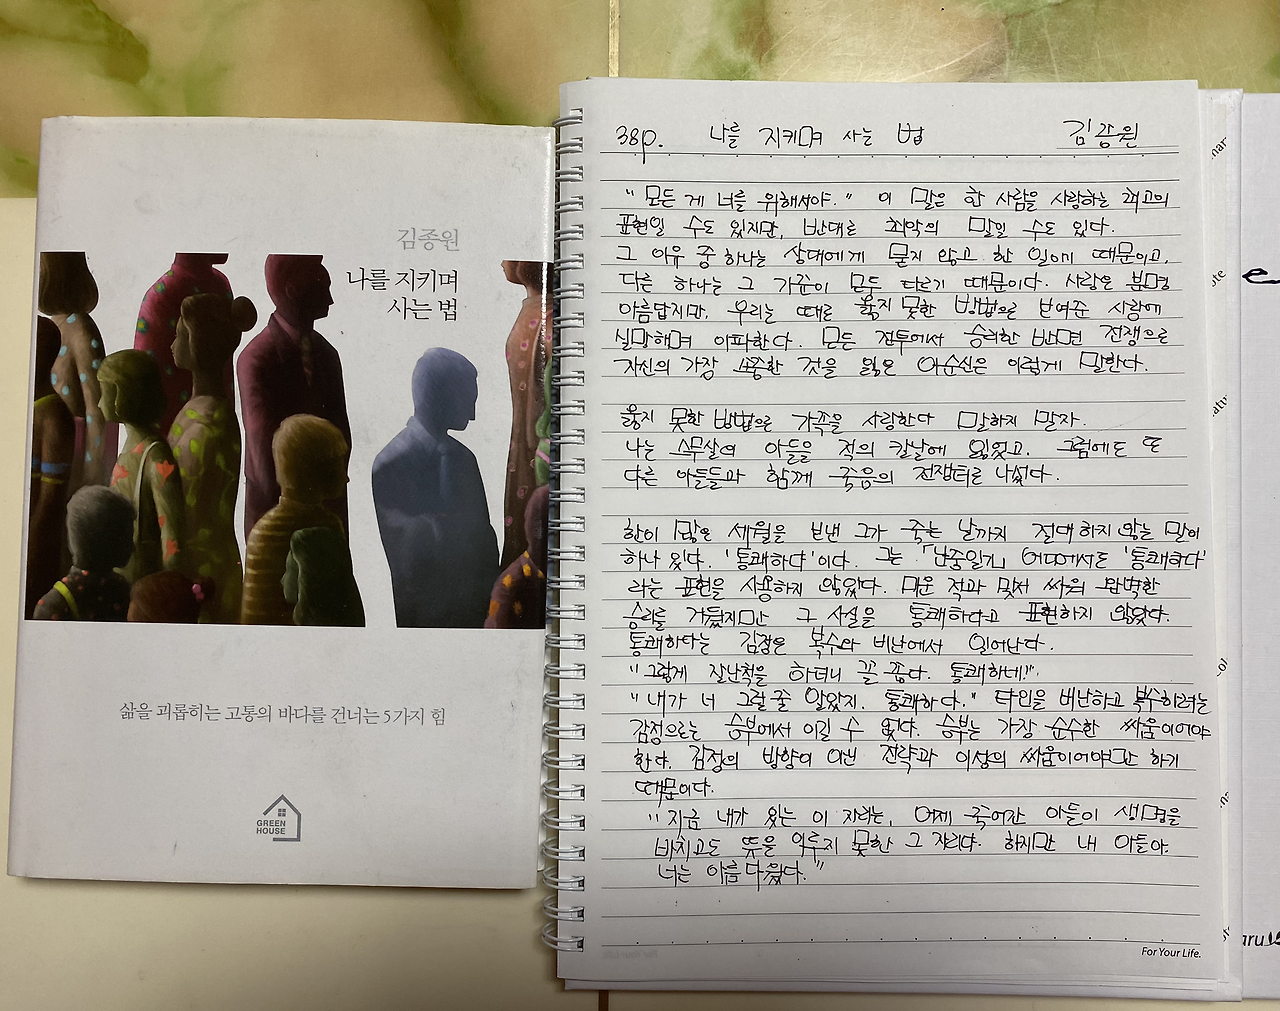 김종원
나를 지키며
사는 법
삶을 괴롭히는 고통의 바다를 건너는 5가지 힘
GREEN
HOUSE
38p. 나를 지키며 사는 법 김종원
"모든 게 너를 위해서야." 이 말은 한 사람을 사랑하는 최고의
표현일 수도 있지만, 반대로 최악의 말일 수도 있다.
그 이유 중 하나는 상대에게 묻지 않고 한 일이기 때문이고,
다른 하나는 그 기준이 모두 다르기 때문이다. 사랑은 분명
아름답지만, 우리는 때로 옳지 못한 방법으로 보여준 사랑에
실망해며 아파한다. 모든 전투에서 승리한 반면 전쟁으로
자신의 가장 소중한 것을 잃은 이순신은 이렇게 말한다.
옳지 못한 방법으로 가족을 사랑한다 말하지 말자.
나는 스무살의 아들을 적의 칼날에 잃었고, 그럼에도 또
다른 아들들과 함께 죽음의 전쟁터로 나섰다.
한이 많은 세월을 보낸 그가 죽는 날까지 절대 하지 않는 말이
하나 있다. '통쾌하다'이다. 그는 「난중일기」 어디에서도 '통쾌하다'
라는 표현을 사용하지 않았다. 미운 적과 맞서 싸워 완벽한
승리를 거뒀지만 그 사실을 통쾌하다고 표현하지 않았다.
통쾌하다는 감정은 복수와 비난에서 일어난다.
"그렇게 잘난척을 하더니 꼴 좋다. 통쾌하네!"
"내가 너 그럴 줄 알았지. 통쾌하다." 타인을 비난하고 복수하려는
감정으로는 승부에서 이길 수 없다. 승부는 가장 순수한 싸움이어야
한다. 감정의 방향이 아닌 전략과 이성의 싸움이어야만 하기
때문이다.
"지금 내가 있는 이 자리는, 어제 죽어간 아들이 생명을
바치고도 뜻을 이루지 못한 그 자리다. 하지만 내 아들아.
너는 아름다웠다."
For Your Life.